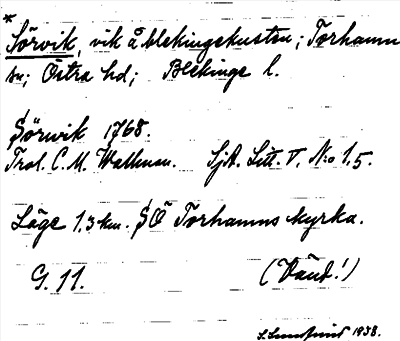 *
Sörvik, vik å blekingekusten; Torhamn
sn; Östra hd; Blekinge l.
Sörwik 1768.
Trol. C. M. Wallman. SjA. Litt. V. N:o 1.5.
Läge 1.3 km. SÖ Torhamns kyrka.
G. 11. (Vänd!)
S. Lundqvist 1938.